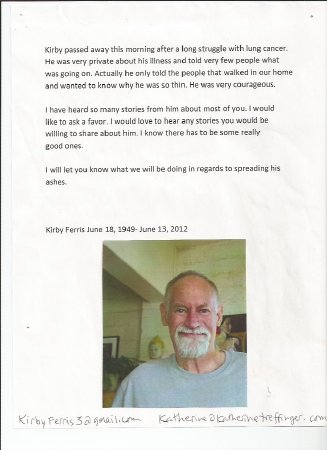 Kirby passed away this morning after a long struggle with lung cancer.
He was very private about his illness and told very few people what
was going on. Actually he only told the people that walked in our home
and wanted to know why he was so thin. He was very courageous.
I have heard so many stories from him about most of you. I would
like to ask a favor. I would love to hear any stories you would be
willing to share about him. I know there has to be some really
good ones.
I will let you know what we will be doing in regards to spreading his
ashes.
Kirby Ferris June 18, 1949- June 13, 2012
KirbyFerris3@gmail.com Katherine@katherinetreffinger.com